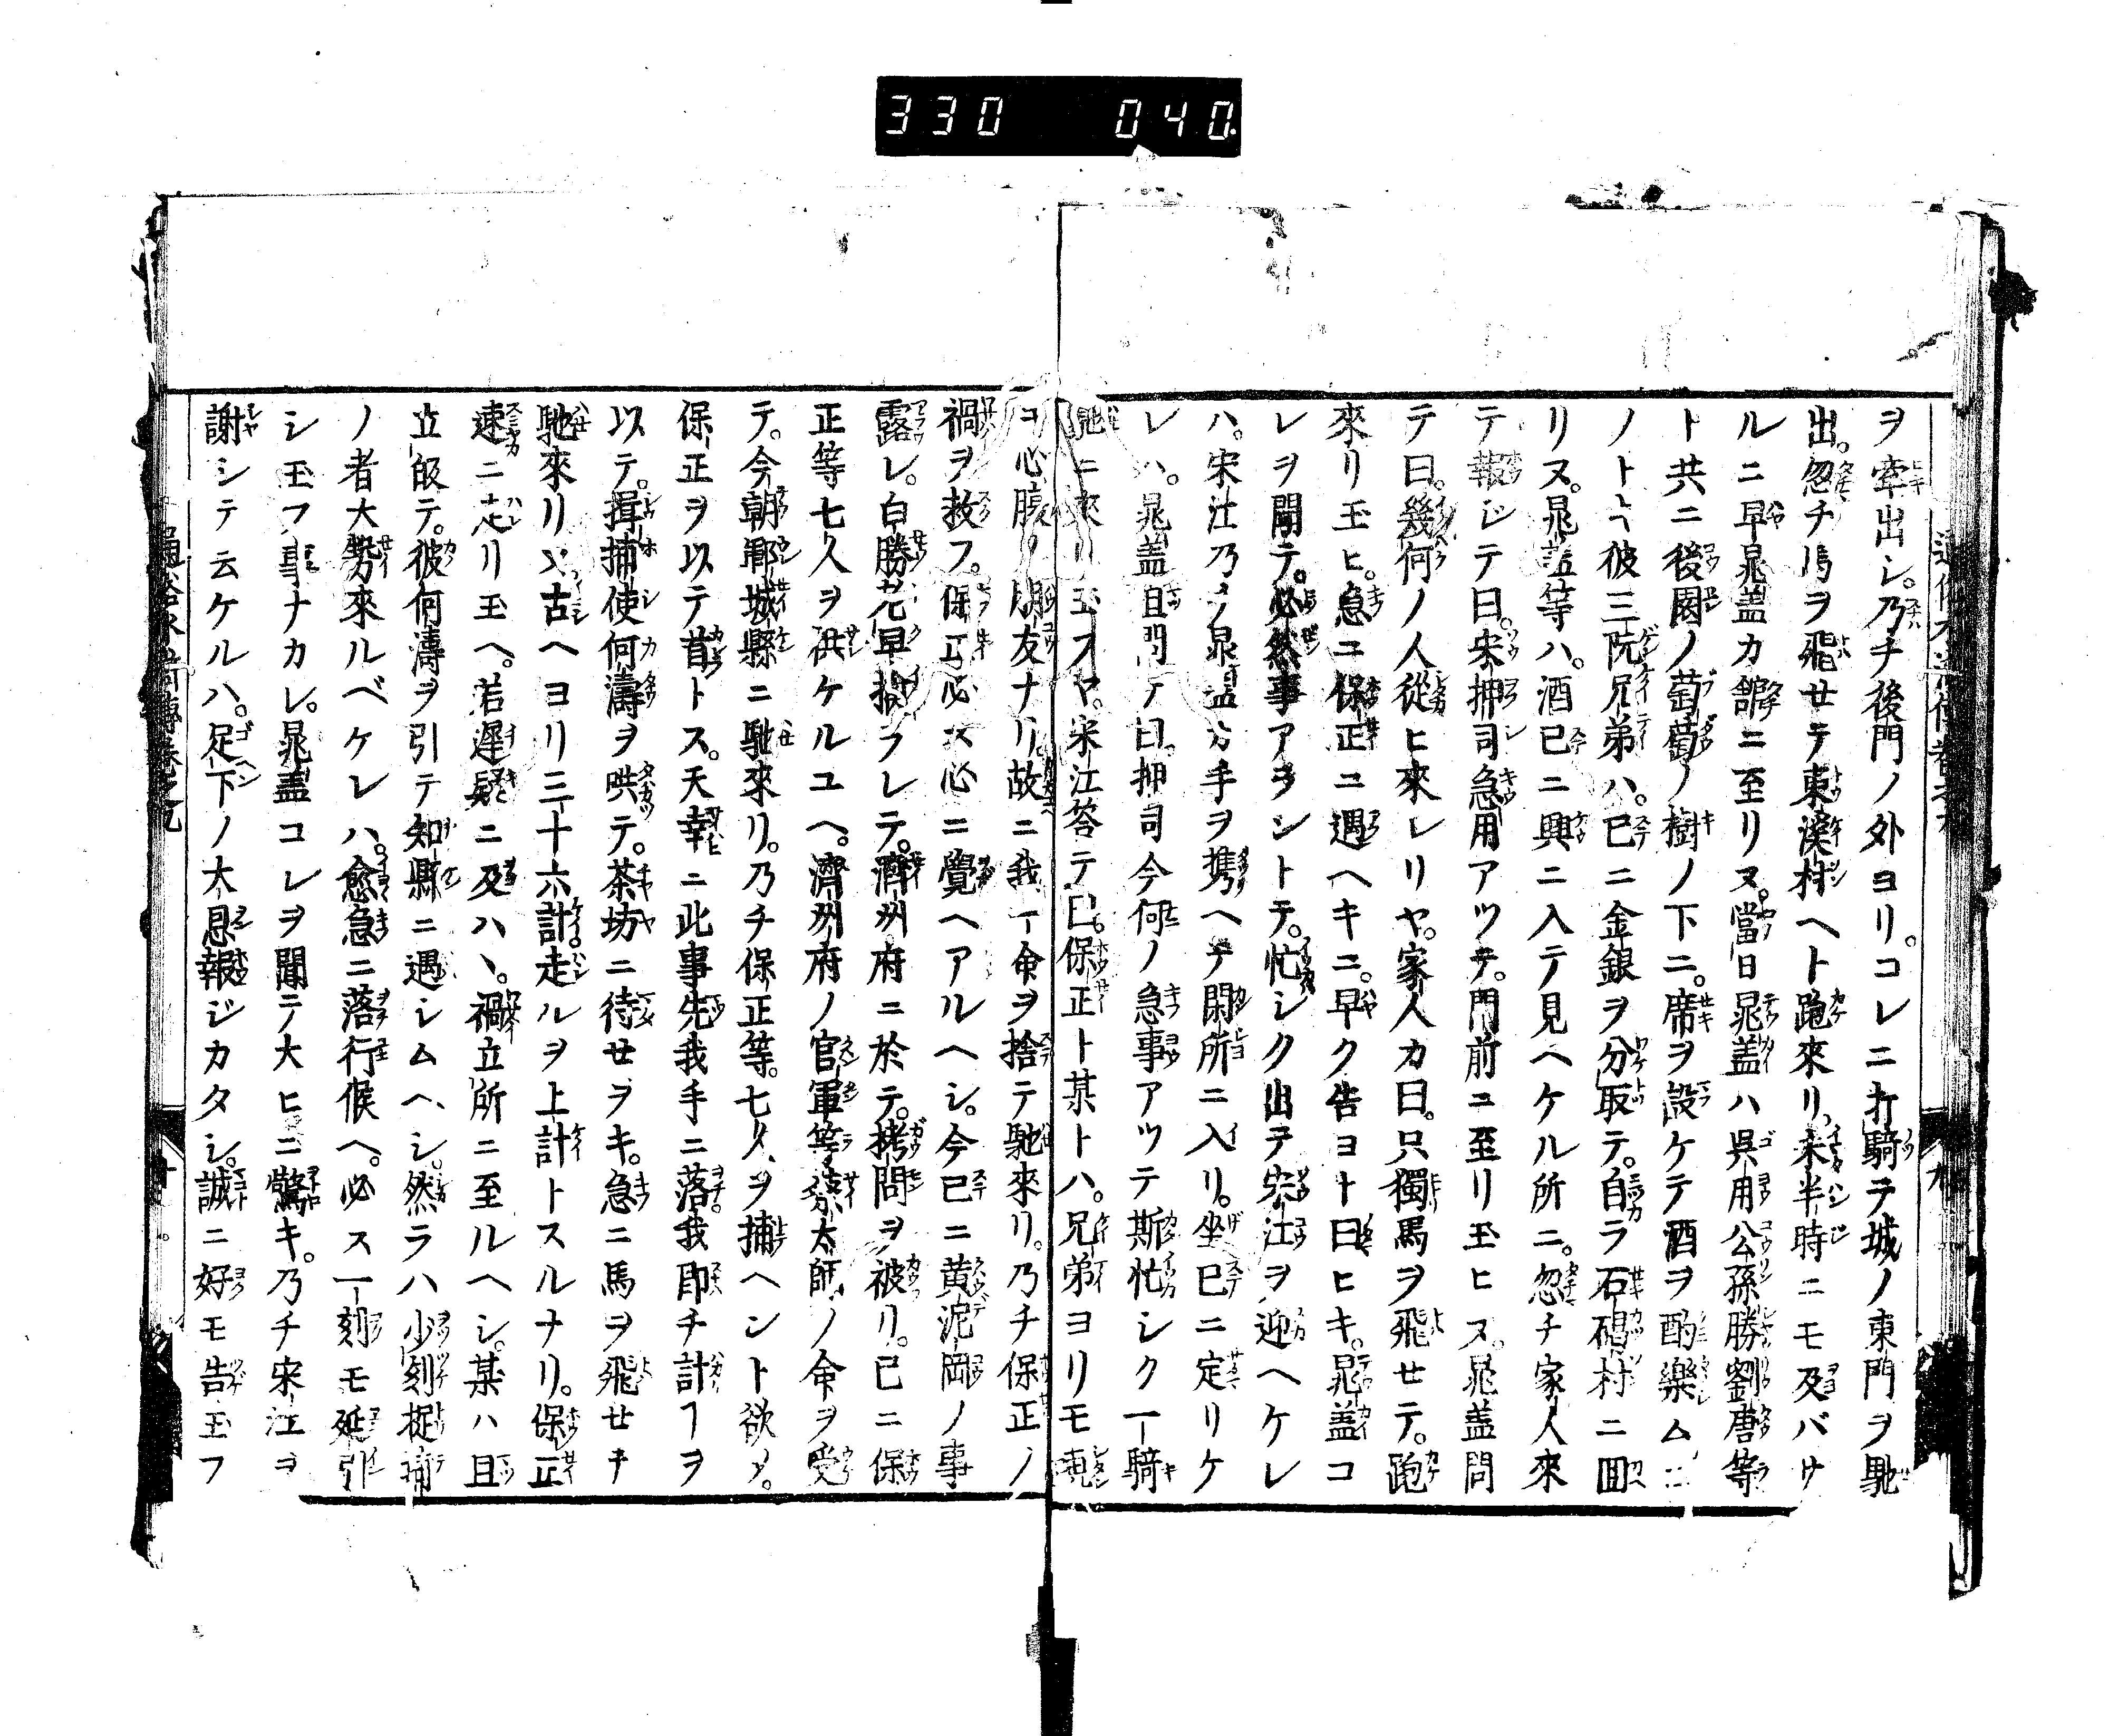 330 040
ヲ牽出シ。乃チ後門ノ外ヨリ。コレニ打騎テ城ノ東門ヲ馳
出。忽チ馬ヲ飛セテ東溪村ヘト跑來リ。未半時ニモ及バサ
ルニ早晁盖カ舘ニ至リヌ。當日晁盖ハ呉用公孫勝劉唐等
ト共ニ後園ノ葡萄ノ樹ノ下ニ。席ヲ設ケテ酒ヲ酌樂ム
ノトキ彼三阮兄弟ハ。已ニ金銀ヲ分取テ。自ラ石碣村ニ囬
リヌ。晁盖等ハ。酒已ニ興ニ入テ見ヘケル所ニ。忽チ家人來
テ報シテ曰。宋押司急用アツテ。門前ニ至リ玉ヒヌ。晁盖問
テ曰。幾何ノ人從ヒ來レリヤ。家人カ曰。只獨馬ヲ飛セテ。跑
來リ玉ヒ。急ニ保正ニ遇ヘキニ。早ク告ヨト曰ヒキ。晁盖コ
レヲ聞テ。必然事アラントテ。忙シク出テ宋江ヲ迎ヘケレ
ハ。宋江乃チ晁盖カ手ヲ携ヘテ閑所ニ入リ。坐已ニ定リケ
レハ。晁盖且問テ曰。押司今何ノ急事アツテ斯忙シク一騎
馳ニ來リ玉フヤ。宋江答テ曰。保正ト某トハ。兄弟ヨリモ
ヲ心腹ノ朋友ナリ。故ニ我一命ヲ捨テ馳來リ。乃チ保正ノ
禍ヲ救フ。保正必ス心ニ覺ヘアルヘシ。今已ニ黄泥岡ノ事
露レ。白勝先早擒ラレテ。濟州府ニ於テ。拷問ヲ被リ。已ニ保
正等七人ヲ供ケルユヘ。濟州府ノ官軍等蔡太師ノ命ヲ受
テ。今朝鄆城縣ニ馳來リ。乃チ保正等。七人ヲ捕ヘント欲ス。
保正ヲ以テ首トス。天幸ニ此事先我手ニ落。我即チ計ヿヲ
以テ。揖捕使何濤ヲ哄テ。茶坊ニ待セヲキ。急ニ馬ヲ飛セテ
馳來リヌ。古ヘヨリ三十六計。走ルヲ上計トスルナリ。保正
速ニ走リ玉ヘ。若遲疑ニ及ハヽ。禍立所ニ至ルヘシ。某ハ且
立皈テ。彼何濤ヲ引テ知縣ニ遇シムヘシ。然ラハ少刻捉捕
ノ者大勢來ルベケレハ。愈急ニ落行候ヘ。必ス一刻モ延引
シ玉フ事ナカレ。晁盖コレヲ聞テ大ヒニ驚キ。乃チ宋江ヲ
謝シテ云ケルハ。足下ノ大恩報ジカタシ。誠ニ好モ告玉フ